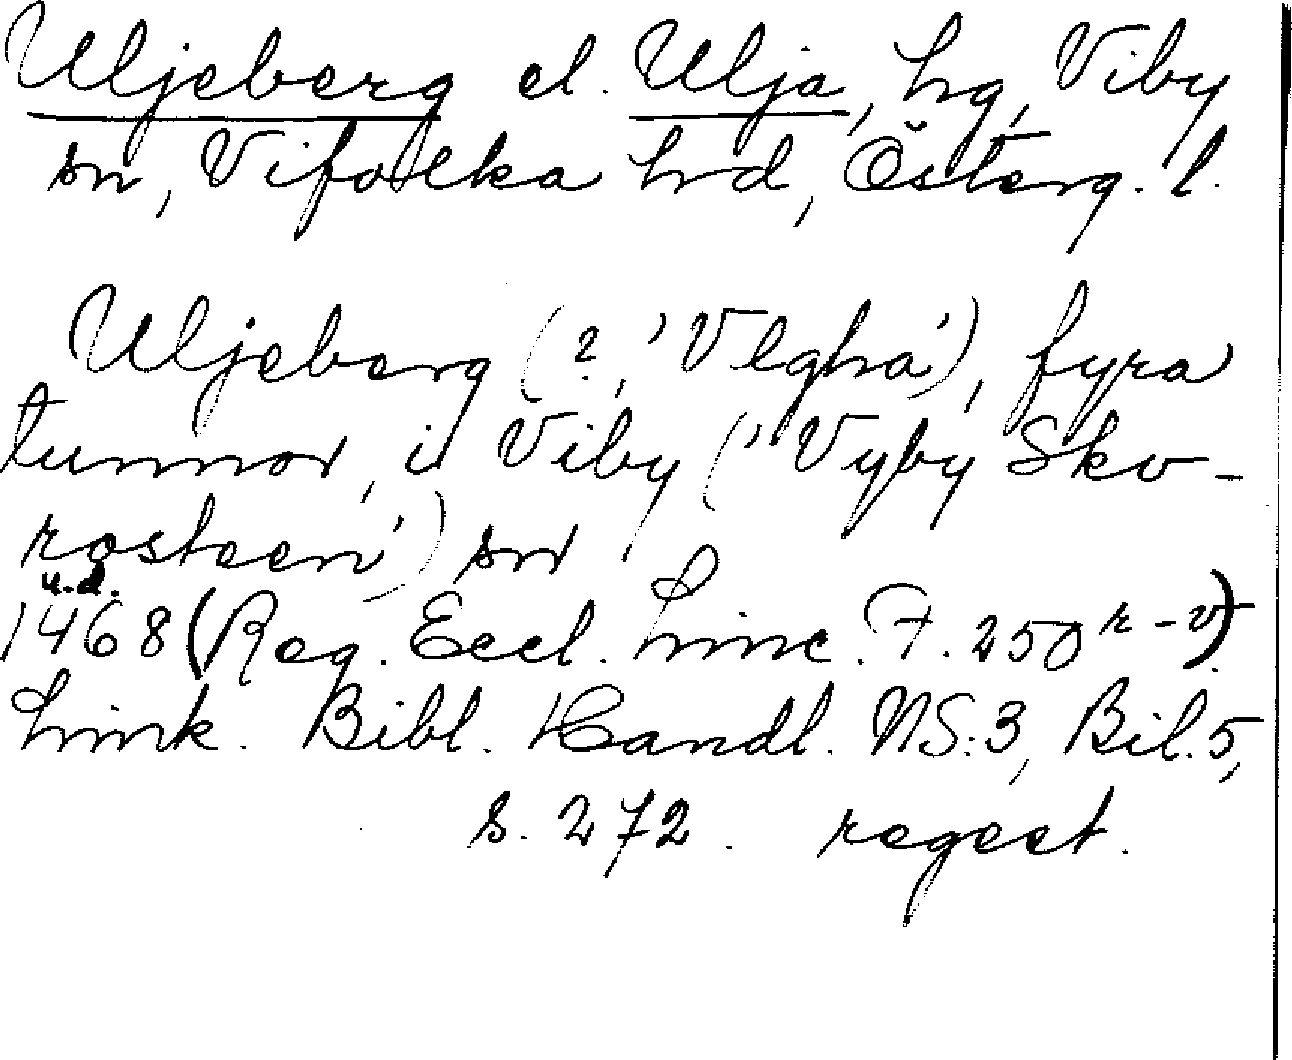 Uljeberg el. Ulja, hg, Viby
sn, Vifolka hrd, Österg. l.
Uljeberg (?, 'Vlgha'), fyra
tunnor, i Viby ('Vyby Sko-
rosteen') sn
u.d.
1468 (Reg. Eccl. Linc. F. 250 r-v).
Link. Bibl. Handl. NS:3, Bil. 5,
s. 272. regest.